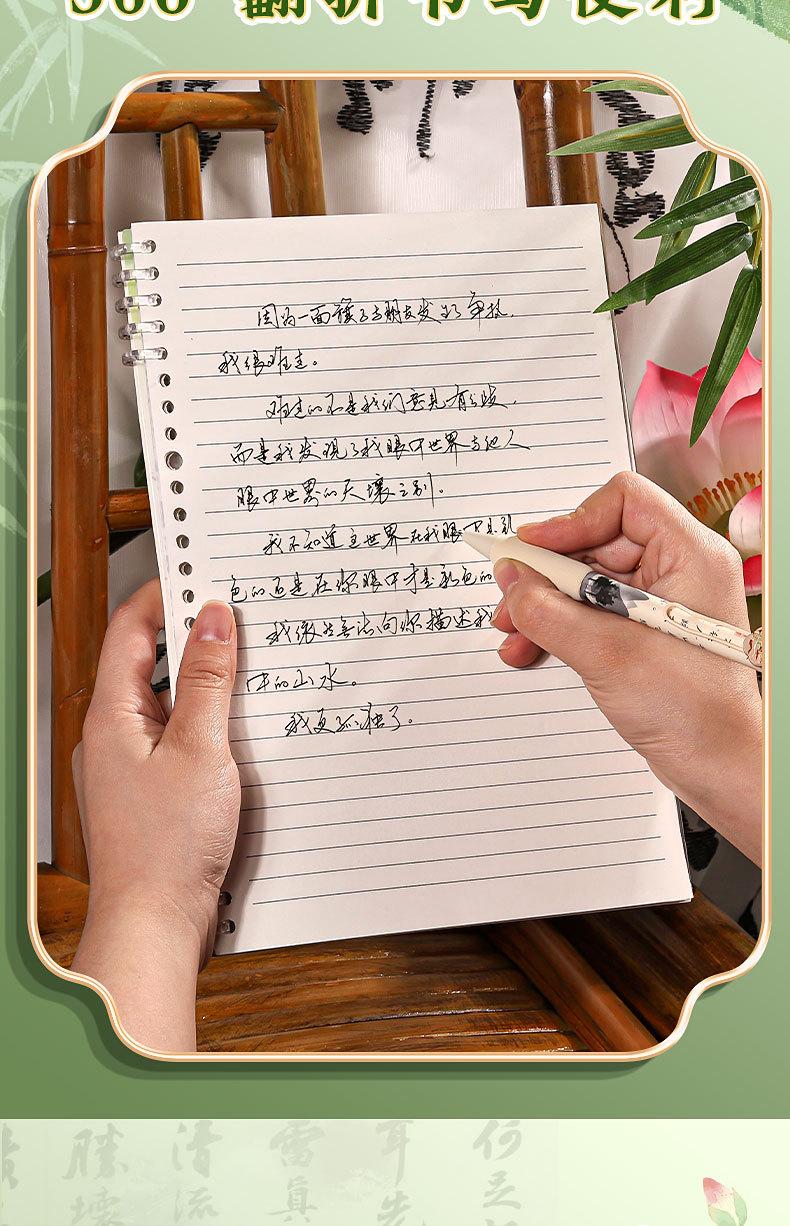 360°翻折书写便利
因为一面旗子与朋友发生了争执.
我很难过。
难过的不是我们意见有分歧.
而是我发现了我眼中世界与他人
眼中世界的天壤之别。
我不知道 世界 在我眼中是
色的还是在你眼中才是彩色的
我很 无法向你描述我
中的山水。
我更孤独了。
何
耳
雷真
清流
勝壞